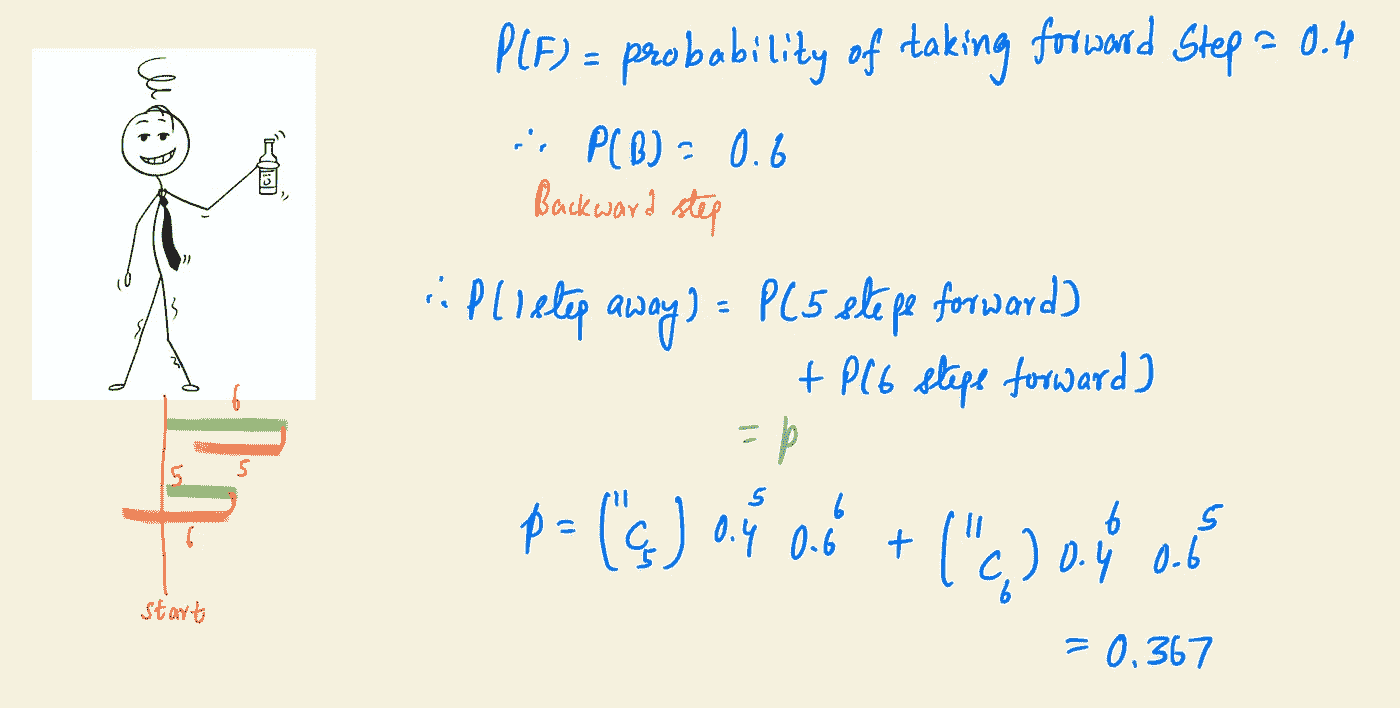 P(F) = probability of taking forward Step = 0.4
∴ P(B) = 0.6
Backward step
∴ P(1 step away) = P(5 steps forward)
+ P(6 steps forward)
= p
p = (¹¹C₅) 0.4⁵ 0.6⁶ + (¹¹C₆) 0.4⁶ 0.6⁵
= 0.367
6
5
5
6
start